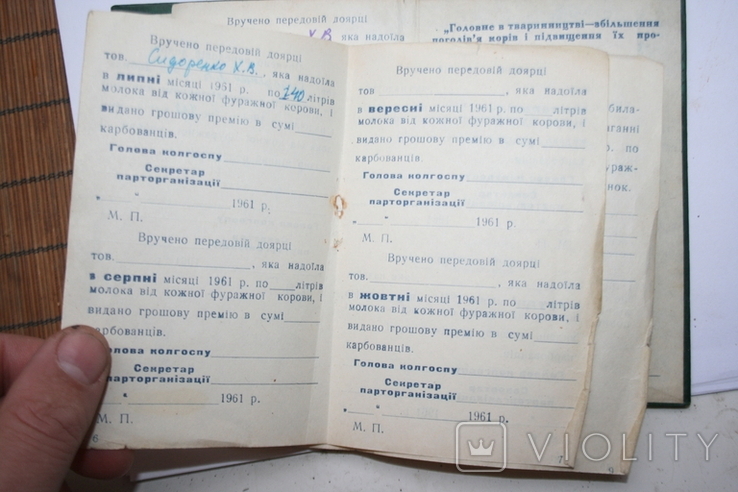 Вручено передовій доярці
Х.В. яка надоїла
„Головне в тваринництві—збільшення
поголів'я корів і підвищення їх про-
Вручено передовій доярці
тов. Сидоренко Х.В., яка надоїла
в липні місяці 1951 р. по 140 літрів
молока від кожної фуражної корови, і
видано грошову премію в сумі
карбованців.
Голова колгоспу
Секретар
парторганізації
„ “ 1961 р.
М. П.
Вручено передовій доярці
тов. , яка надоїла
в серпні місяці 1961 р. по літрів
молока від кожної фуражної корови, і
видано грошову премію в сумі
карбованців.
Голова колгоспу
Секретар
парторганізації
„ “ 1961 р.
М. П.
6
Вручено передовій доярці
тов , яка надоїла
в вересні місяці 1961 р. по літрів
молока від кожної фуражної корови, і
видано грошову премію в сумі
карбованців.
Голова колгоспу
Секретар
парторганізації
„ “ 1961 р.
М. П.
Вручено передовій доярці
тов. , яка надоїла
в жовтні місяці 1961 р. по літрів
молока від кожної фуражної корови, і
видано грошову премію в сумі
карбованців.
Голова колгоспу
Секретар
парторганізації
„ “ 1961 р.
М. П.
7
9
VIOLITY